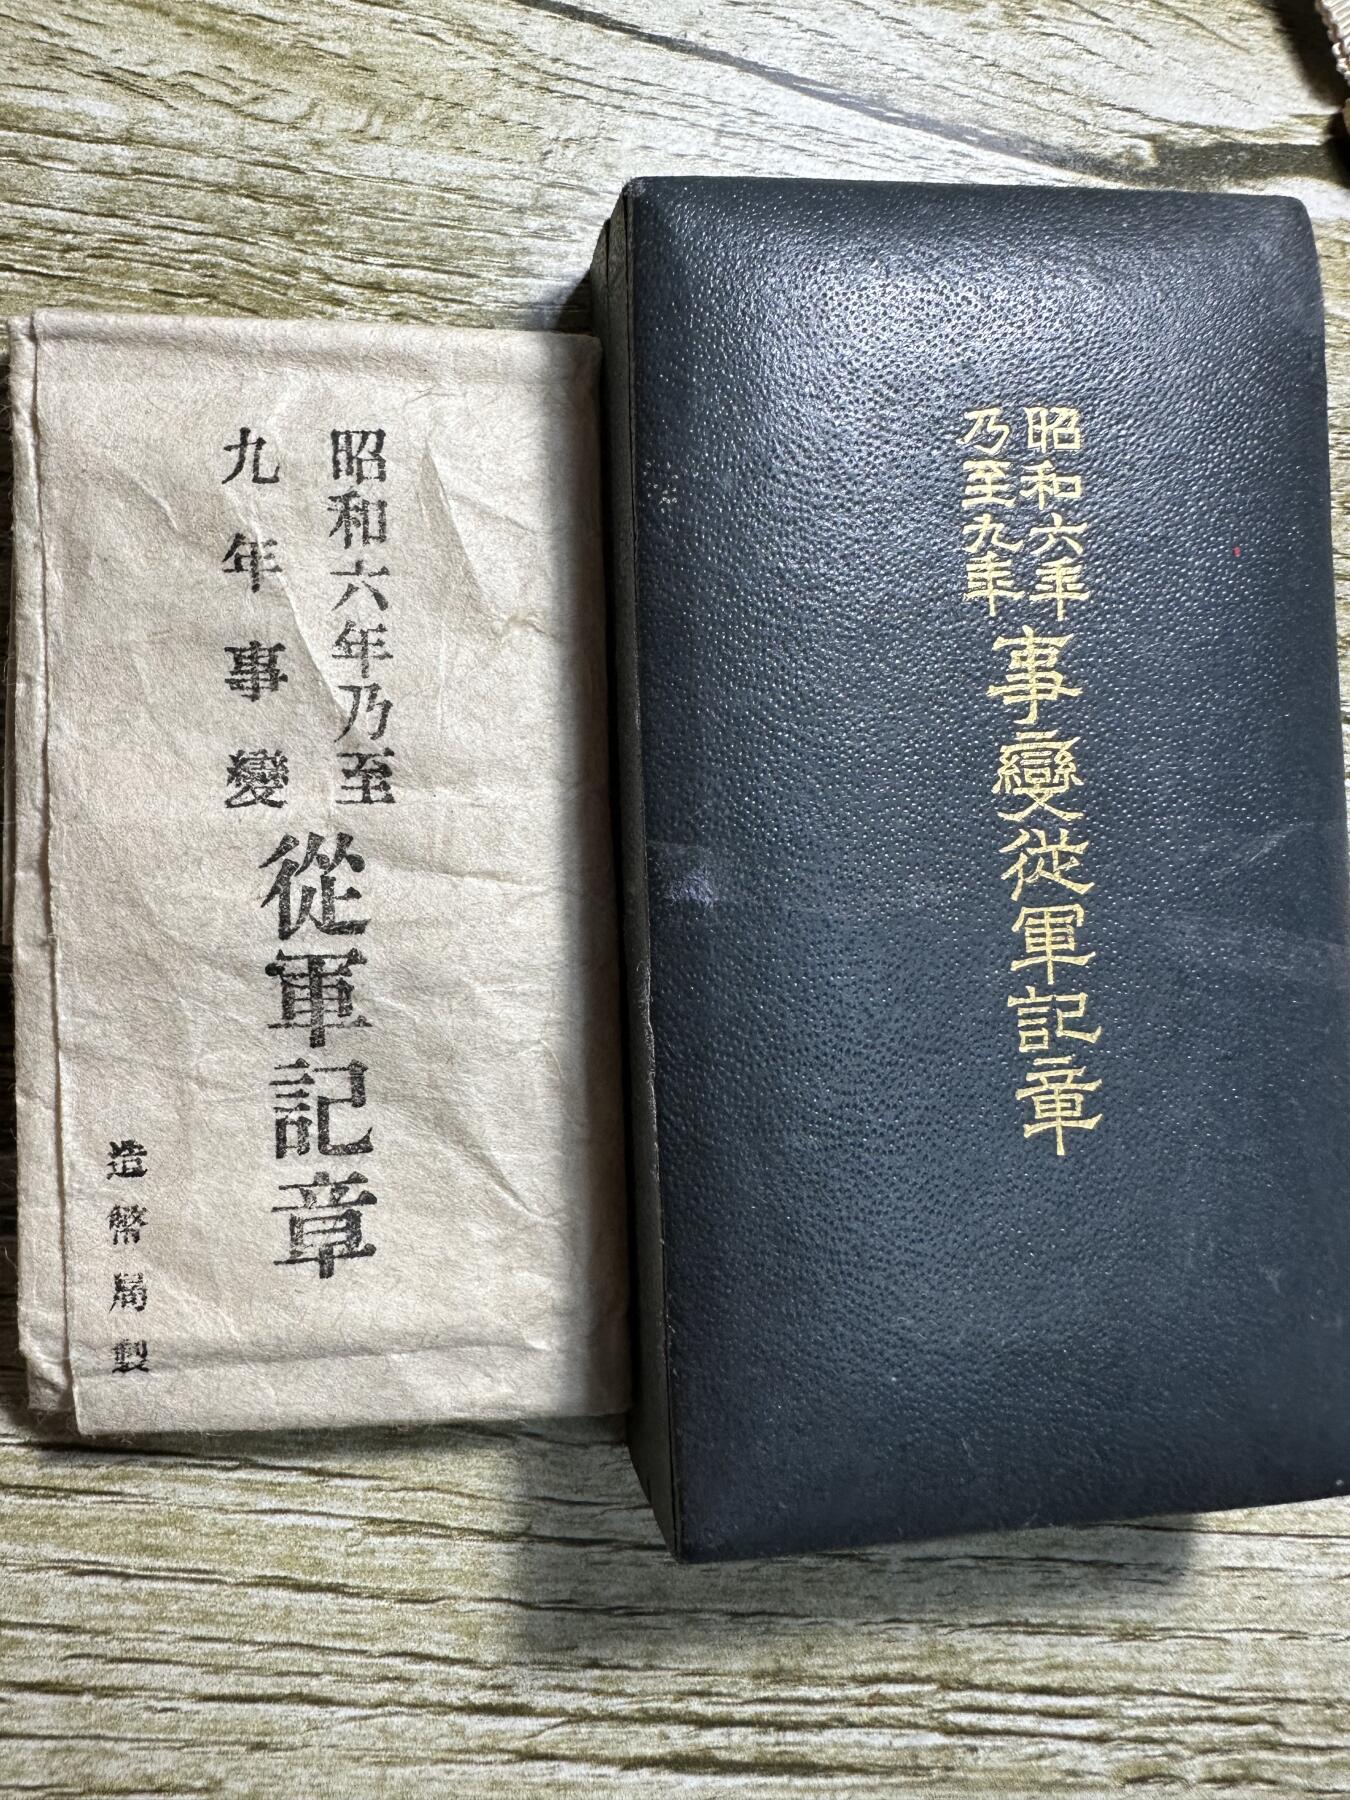 昭和六年乃至
九年事變
從軍記章
造幣局製
昭和六年
乃至九年
事變從軍記章